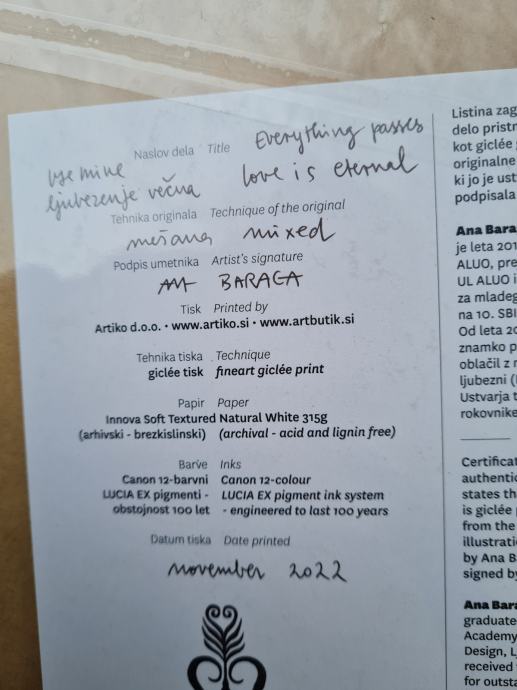 Naslov dela Title
vse mine Everything passes
ljubezenje večna love is eternal
Tehnika originala Technique of the original
mešana mixed
Podpis umetnika Artist's signature
BARAGA
Tisk Printed by
Artiko d.o.o. • www.artiko.si • www.artbutik.si
Tehnika tiska Technique
giclée tisk fineart giclée print
Papir Paper
Innova Soft Textured Natural White 315g
(arhivski - brezkislinski) (archival - acid and lignin free)
Barve Inks
Canon 12-barvni Canon 12-colour
LUCIA EX pigmenti - LUCIA EX pigment ink system
obstojnost 100 let - engineered to last 100 years
Datum tiska Date printed
november 2022
Listina zag
delo pristr
kot giclée
originalne
ki jo je ust
podpisala
Ana Bara
je leta 201
ALUO, pre
UL ALUO i
za mladeg
na 10. SBI
Od leta 20
znamko p
oblačil z r
ljubezni (
Ustvarja t
rokovnike
Certificat
authentic
states th
is giclée p
from the
illustrati
by Ana B
signed by
Ana Bara
graduate
Academy
Design, L
received
for outsta